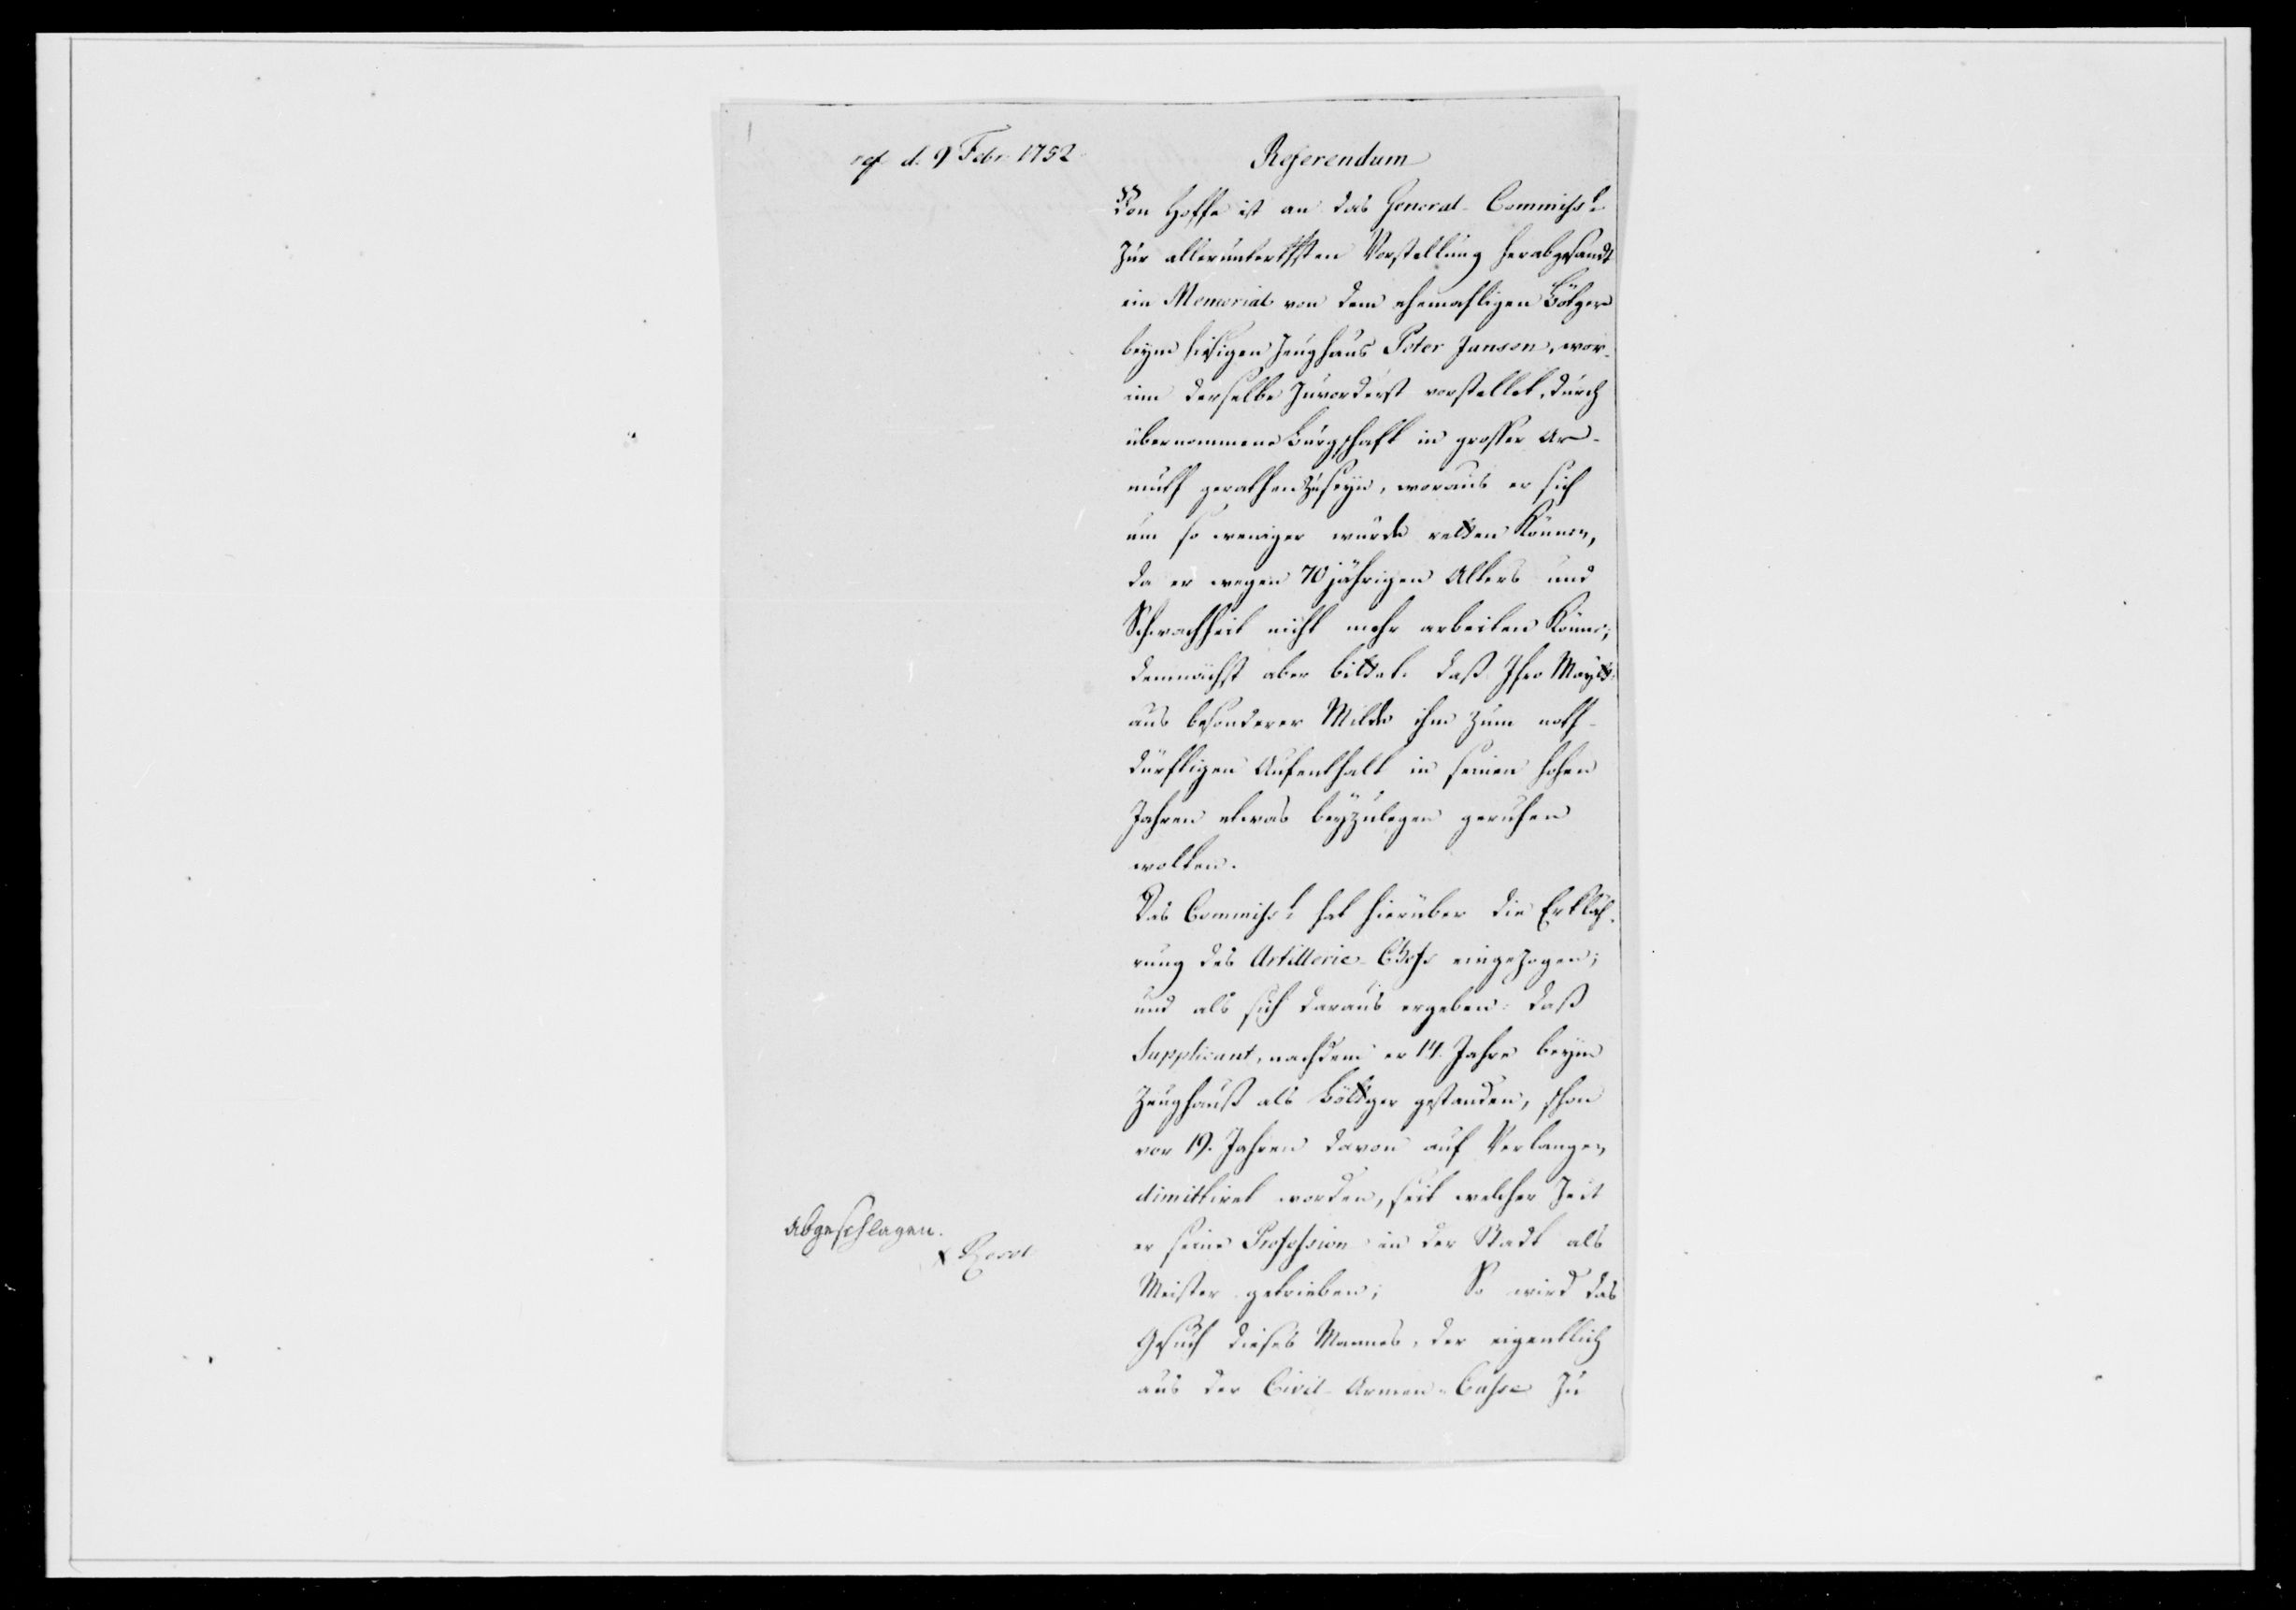 ref d. 9 Febr. 1752
Referendum
Von Hoffe ist an das General-Commiss:t
zur alleruntertsten Vorstellung herabgesandt
ein Memorial von dem ehemahligen Bötger
beym hiesigen Zeughaus Peter Jansen, wor-
inn derselbe zuvorderst vorstellet, durch
übernommene Bürgschaft in grosser Ar-
muth gerathen zu seyn, woraus er sich
um so weniger würde retten können,
da er wegen 70 jährigen Alters und
Schwachheit nicht mehr arbeiten könne;
demnächst aber bittet. daß Ihro Maytt:
aus besonderer Milde ihm zum noth-
dürftigen Aufenthalt in seinen hohen
Jahren etwas beyzulegen geruhen
wolten.
Das Commiss:t hat hierüber die Erkläh-
rung des Artillerie-Chefs eingezogen;
und als sich daraus ergeben: daß
Supplicant, nachdem er 14. Jahre beym
Zeughauß als Böttger gestanden, schon
vor 19. Jahren davon auf Verlangen
dimittiret worden, seit welcher Zeit
er seine Profession in der Stadt als
Meister getrieben; So wird das
Gesuch dieses Mannes, der eigentlich
aus der Civil-Armen-Casse zu
abgeschlagen.